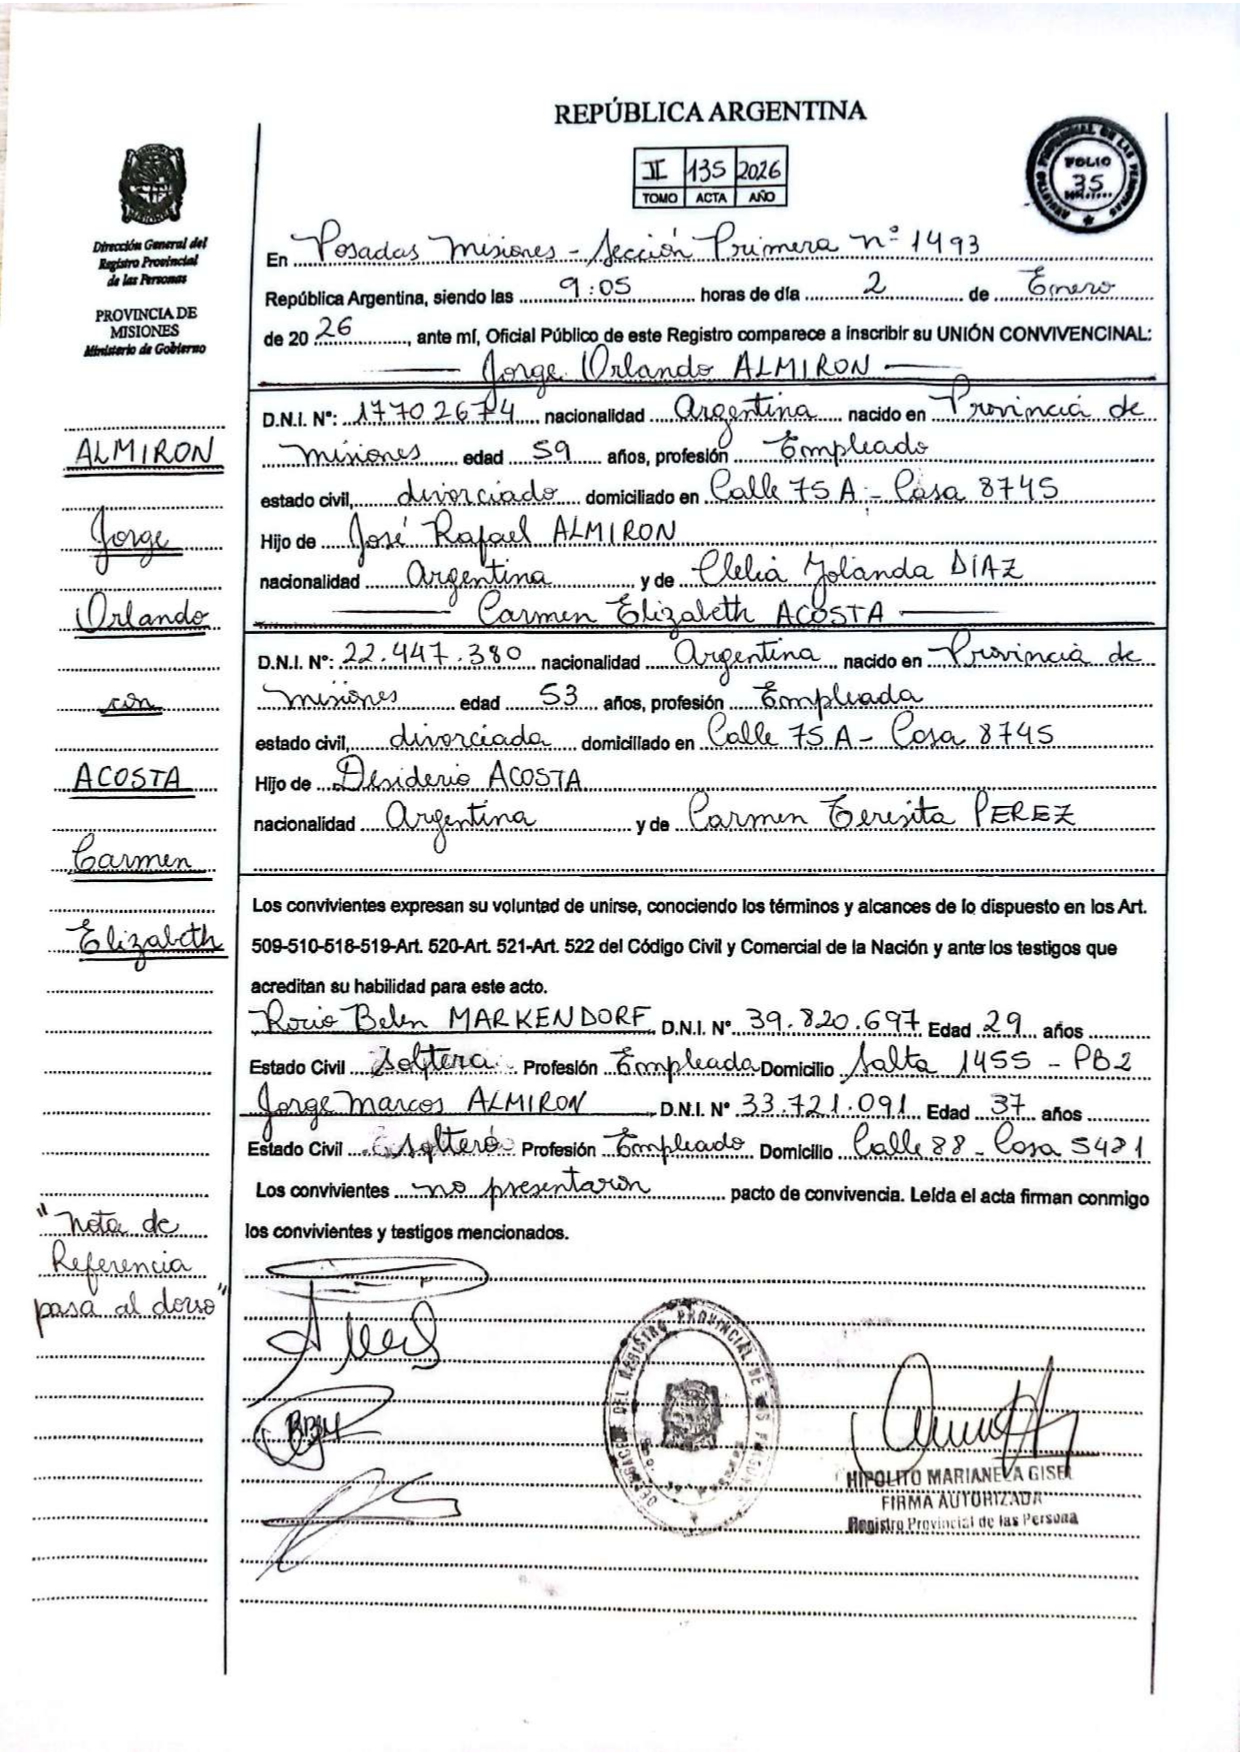 REPÚBLICA ARGENTINA
II 135 2026
TOMO ACTA AÑO
FOLIO
35
Dirección General del
Registro Provincial
de las Personas
PROVINCIA DE
MISIONES
Ministerio de Gobierno
En Posadas Misiones - Sección Primera nº 1493
República Argentina, siendo las 9:05 horas de día 2 de Enero
de 20 26, ante mí, Oficial Público de este Registro comparece a inscribir su UNIÓN CONVIVENCINAL:
Jorge Orlando ALMIRON
D.N.I. Nº: 17702674 nacionalidad Argentina nacido en Provincia de
Misiones edad 59 años, profesión Empleado
estado civil, divorciado domiciliado en Calle 75 A - Casa 8745
Hijo de José Rafael ALMIRON
nacionalidad Argentina y de Clelia Yolanda DÍAZ
Carmen Elizabeth ACOSTA
D.N.I. Nº: 22.447.380 nacionalidad Argentina nacido en Provincia de
Misiones edad 53 años, profesión Empleada
estado civil, divorciada domiciliado en Calle 75 A - Casa 8745
Hijo de Desiderio ACOSTA
nacionalidad Argentina y de Carmen Teresita PEREZ
Los convivientes expresan su voluntad de unirse, conociendo los términos y alcances de lo dispuesto en los Art.
509-510-518-519-Art. 520-Art. 521-Art. 522 del Código Civil y Comercial de la Nación y ante los testigos que
acreditan su habilidad para este acto.
Rocio Belen MARKENDORF D.N.I. Nº 39.820.697 Edad 29 años
Estado Civil Soltera Profesión Empleada Domicilio Salta 1455 - PB2
Jorge Marcos ALMIRON D.N.I. Nº 33.721.091 Edad 37 años
Estado Civil Soltero Profesión Empleado Domicilio Calle 88 - Casa 5421
Los convivientes no presentaron pacto de convivencia. Leída el acta firman conmigo
los convivientes y testigos mencionados.
ALMIRON
Jorge
Orlando
con
ACOSTA
Carmen
Elizabeth
"Nota de
Referencia
pasa al dorso"
DEL REGISTRO PROVINCIAL DE LAS
HIPOLITO MARIANELA GISEL
FIRMA AUTORIZADA
Registro Provincial de las Persona